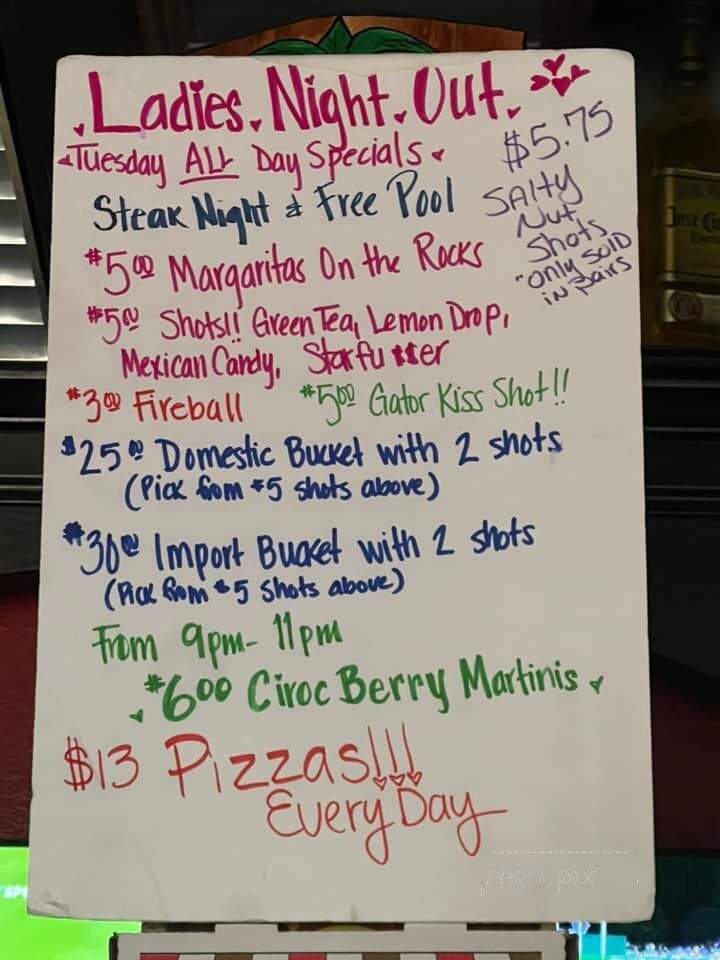 Ladies Night Out
Tuesday ALL Day Specials
Steak Night & Free Pool
$5.75
SALTY
Nut
Shots
"only SOLD
in Pairs
$5.00 Margaritas On the Rocks
$5.00 Shots!! Green Tea, Lemon Drop,
Mexican Candy, Starfu**er
$3.00 Fireball
$5.00 Gator Kiss Shot!!
$25.00 Domestic Bucket with 2 shots
(Pick from $5 shots above)
$30.00 Import Bucket with 2 shots
(Pick from $5 Shots above)
From 9pm-11pm
$6.00 Ciroc Berry Martinis
$13 Pizzas!!!
Every Day
menupix